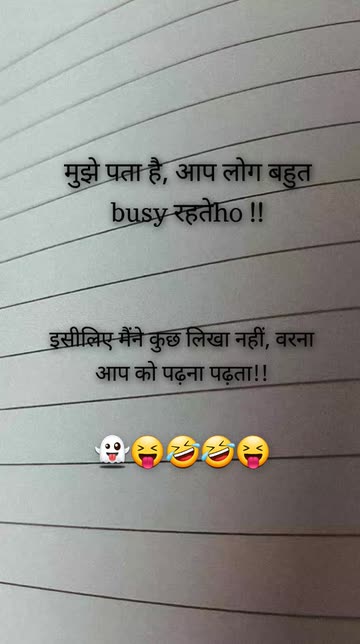 मुझे पता है, आप लोग बहुत
busy रहतेho !!
इसीलिए मैंने कुछ लिखा नहीं, वरना
आप को पढ़ना पढ़ता!!
👻😝🤣🤣😝